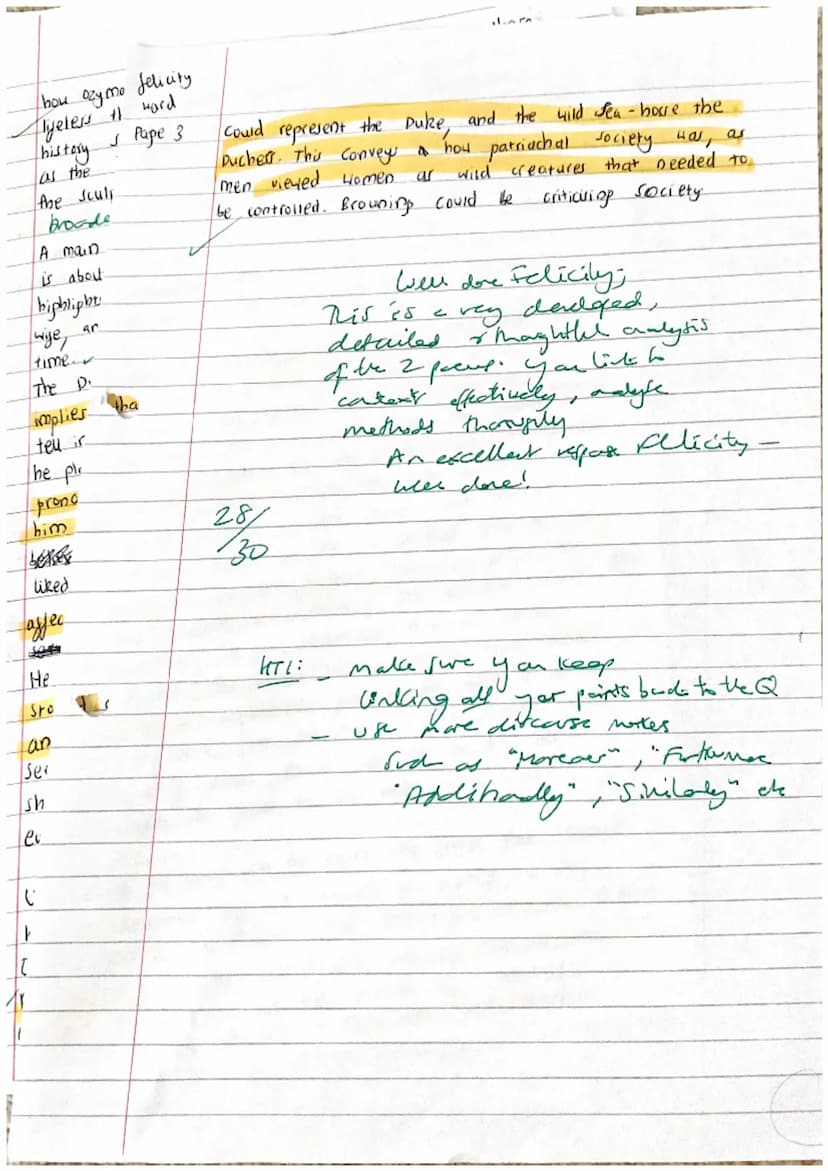 how ozyma felicity
lifeless th ward
history s Page 3
as the
the scul
Broade
A main
is about
highlight
wife, an
time.
The D.
implies tha
tell ir
he pl
prono
him
liked
affec
He
sto
an
Ser
sh
ev
Could represent the Duke, and the wild Sea-horse the
Duchess. This conveys how patriachal society was, as
men viewed women as wild creatures that needed to
be controlled. Browning could be criticising society
Well done Felicity;
This is a very developed,
detailed & thoughtful analysis
of the 2 poems. You link to
context effectively, analyse
methods thoroughly
An excellent response Felicity –
well done!
28/30
HTI: – Make sure you keep
linking all your points back to the Q
– Use more discourse markers
such as "Moreover", "Furthermore
"Additionally", "Similarly" etc